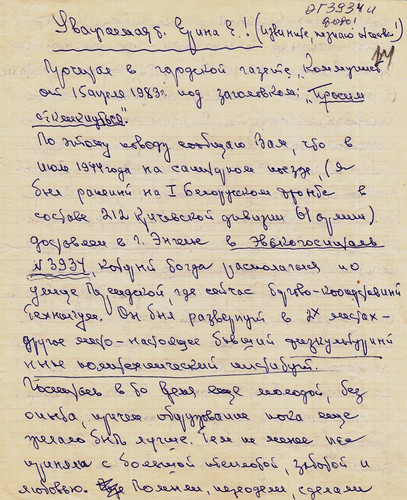 ЭГ 3934 и
Уважаемая т. Ерина Е.! (извините, не знаю отчества!)
Прочитал в городской газете „Коммунист"
от 15 апреля 1983г. под заголовком: „Просим
откликнуться".
По этому поводу сообщаю Вам, что в
июле 1944 года на санитарном поезде, (я
был ранен на I Белорусском фронте в
составе 212 Кричевской дивизии 61 армии)
доставлен в г. Энгельс в Эвакогоспиталь
№ 3934, который тогда располагался по
улице Пушкинской, где сейчас
техникум. Он был развернут в 2х местах-
другое место - настоящее бывший
институт.
Госпиталь в то время еще молодой, без
опыта, причем оборудование пока еще
желало быть лучше. Тем не менее нас
приняли с большой теплотой, заботой и
любовью. Помыли, переодели, сделали